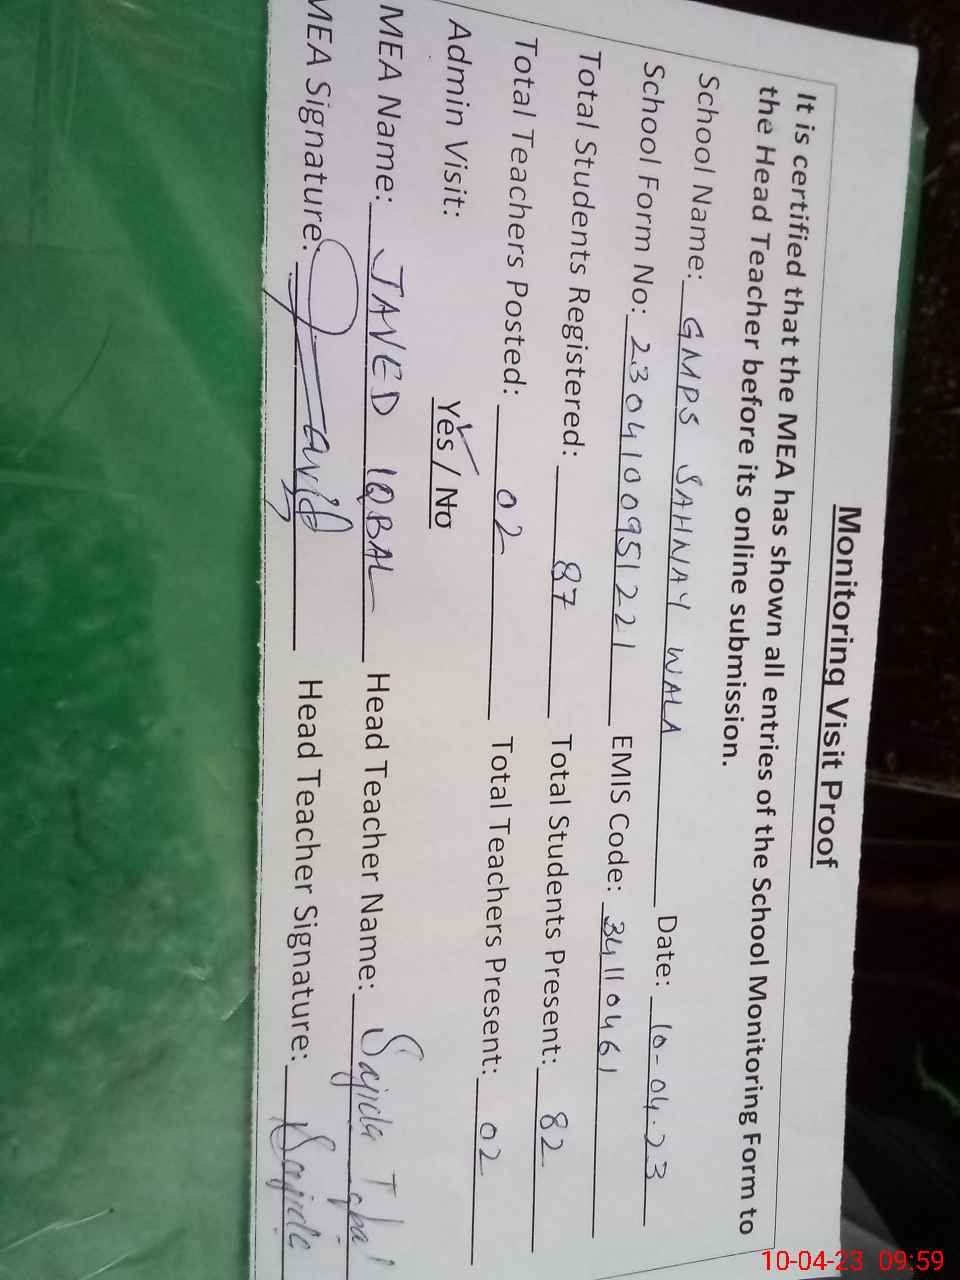 Monitoring Visit Proof
It is certified that the MEA has shown all entries of the School Monitoring Form to
the Head Teacher before its online submission.
School Name: GMPS SAHNAY WALA Date: 10-04-23
School Form No: 2304100951221 EMIS Code: 34110461
Total Students Registered: 87 Total Students Present: 82
Total Teachers Posted: 02 Total Teachers Present: 02
Admin Visit: Yes / No
MEA Name: JAVED IQBAL Head Teacher Name: Sajida Iqbal
MEA Signature: Javid Head Teacher Signature: Sajida
10-04-23 09:59